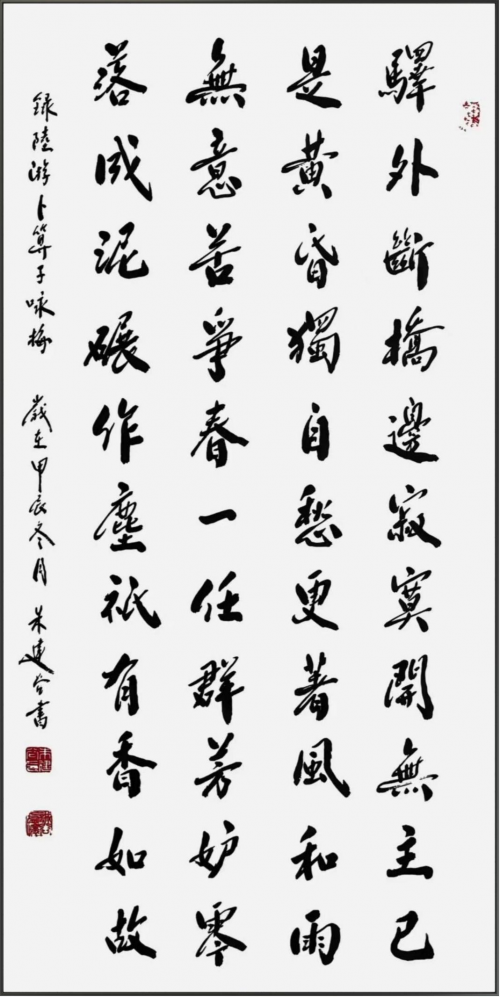 驛外斷橋邊寂寞開無主已
是黃昏獨自愁更著風和雨
無意苦爭春一任群芳妒零
落成泥碾作塵祇有香如故
錄陸游卜算子咏梅 歲在甲辰冬月 朱連合書